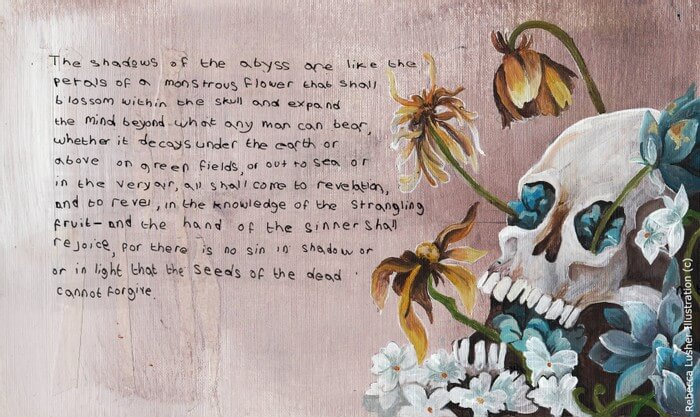 The shadows of the abyss are like the
petals of a monstrous flower that shall
blossom within the skull and expand
the mind beyond what any man can bear,
whether it decays under the earth or
above on green fields, or out to sea or
in the very air, all shall come to revelation,
and to revel, in the knowledge of the strangling
fruit—and the hand of the sinner shall
rejoice, for there is no sin in shadow or
or in light that the seeds of the dead
cannot forgive.
Rebecca Lusher Illustration (c)